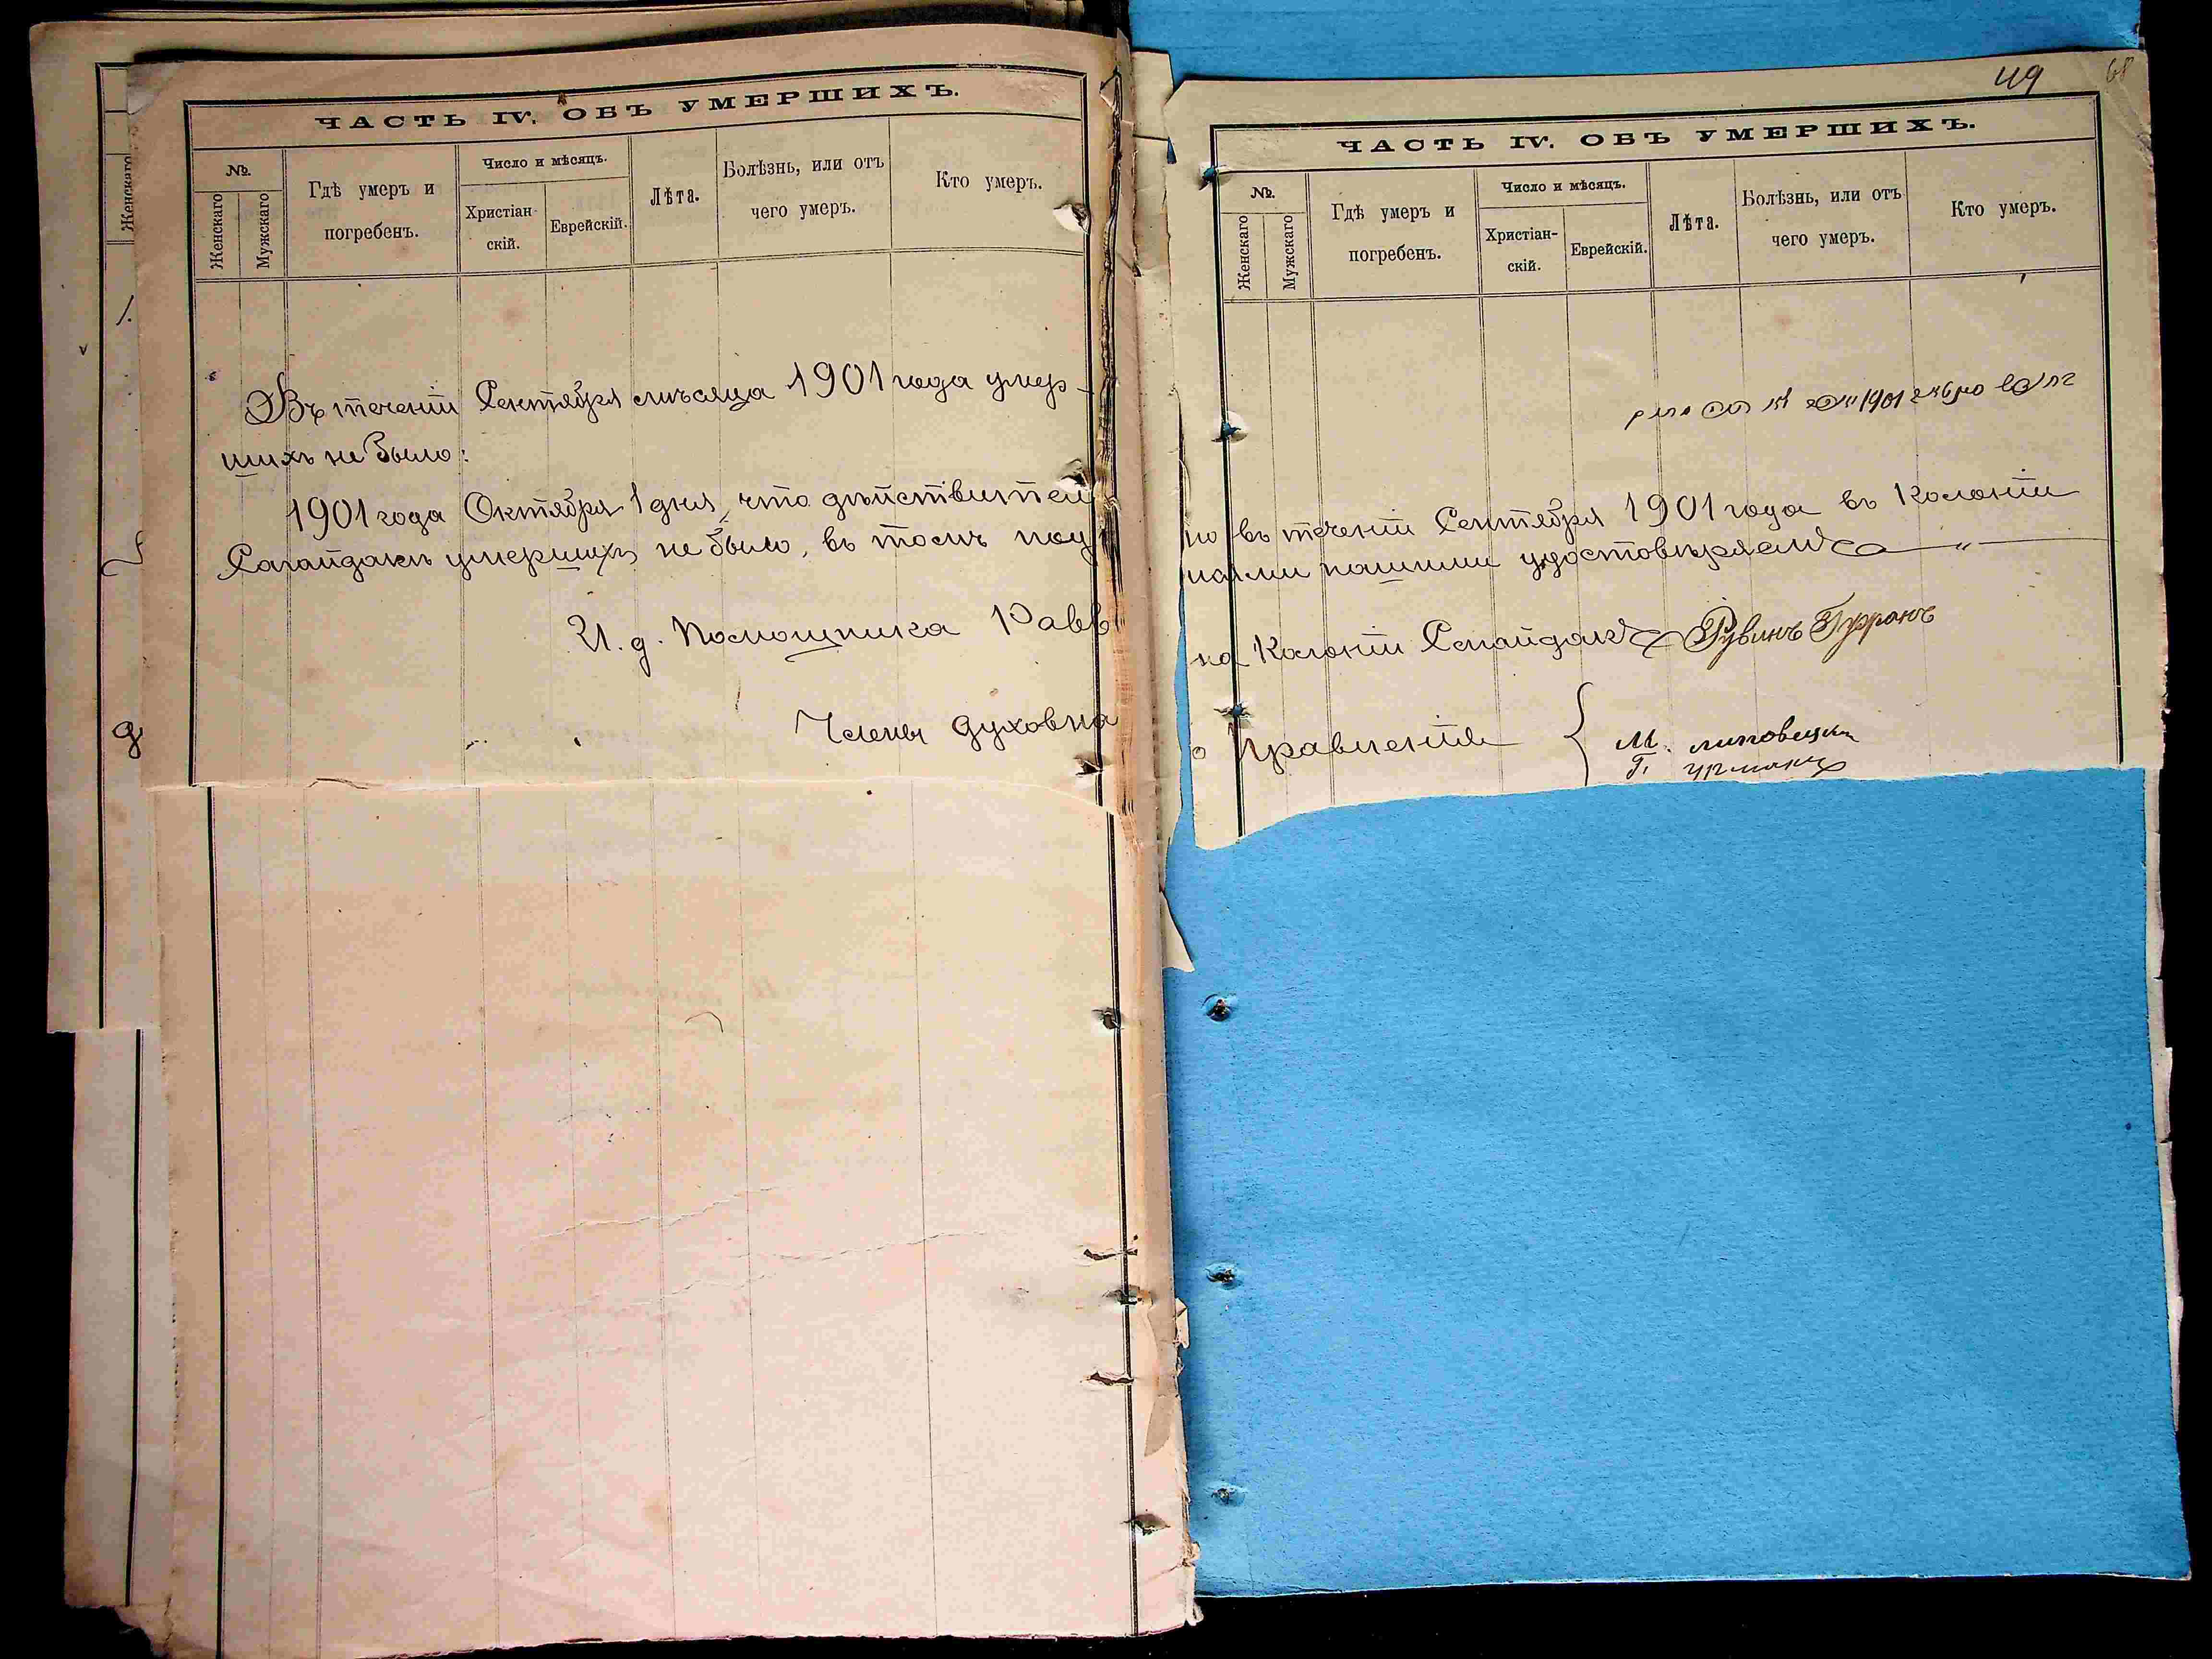 ЧАСТЬ IV. ОБЪ УМЕРШИХЪ.
№.
Женскаго
Мужскаго
Гдѣ умеръ и
погребенъ.
Число и мѣсяцъ.
Христіан-
скій.
Еврейскій.
Лѣта.
Болѣзнь, или отъ
чего умеръ.
Кто умеръ.
Въ теченіи Сентября мѣсяца 1901 года умер-
шихъ не было:
1901 года Октября 1 дня, что дѣйствител
Сагайдакъ умершихъ не было, въ томъ под
И. д. Помощника Равв
Члены духовна
Женскаго
49
68
ЧАСТЬ IV. ОБЪ УМЕРШИХЪ.
№.
Женскаго
Мужскаго
Гдѣ умеръ и
погребенъ.
Число и мѣсяцъ.
Христіан-
скій.
Еврейскій.
Лѣта.
Болѣзнь, или отъ
чего умеръ.
Кто умеръ.
1901
но въ теченіи Сентября 1901 года въ Колоніи
нами нашими удостовѣряемъ
на Колоніи Сагайдакъ Рувинъ
о Правленія
М. Липовецки
Г.